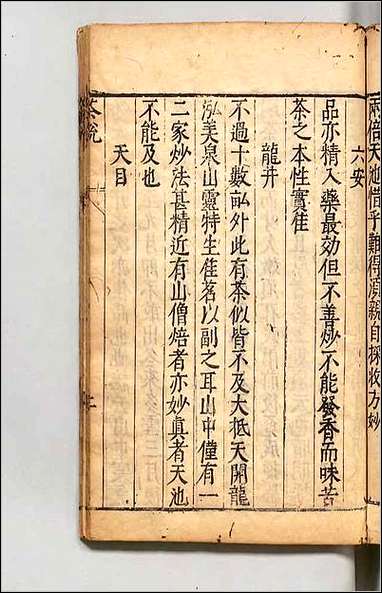 兩倍天池惜乎難得湏親自採收方妙
六安
品亦精入藥最効但不善炒不能發香而味苦
茶之本性實佳
龍井
不過十數畝外此有茶似皆不及大抵天開龍
泓美泉山靈特生佳茗以副之耳山中僅有一
二家炒法甚精近有山僧焙者亦妙眞者天池
不能及也
天目
茶說